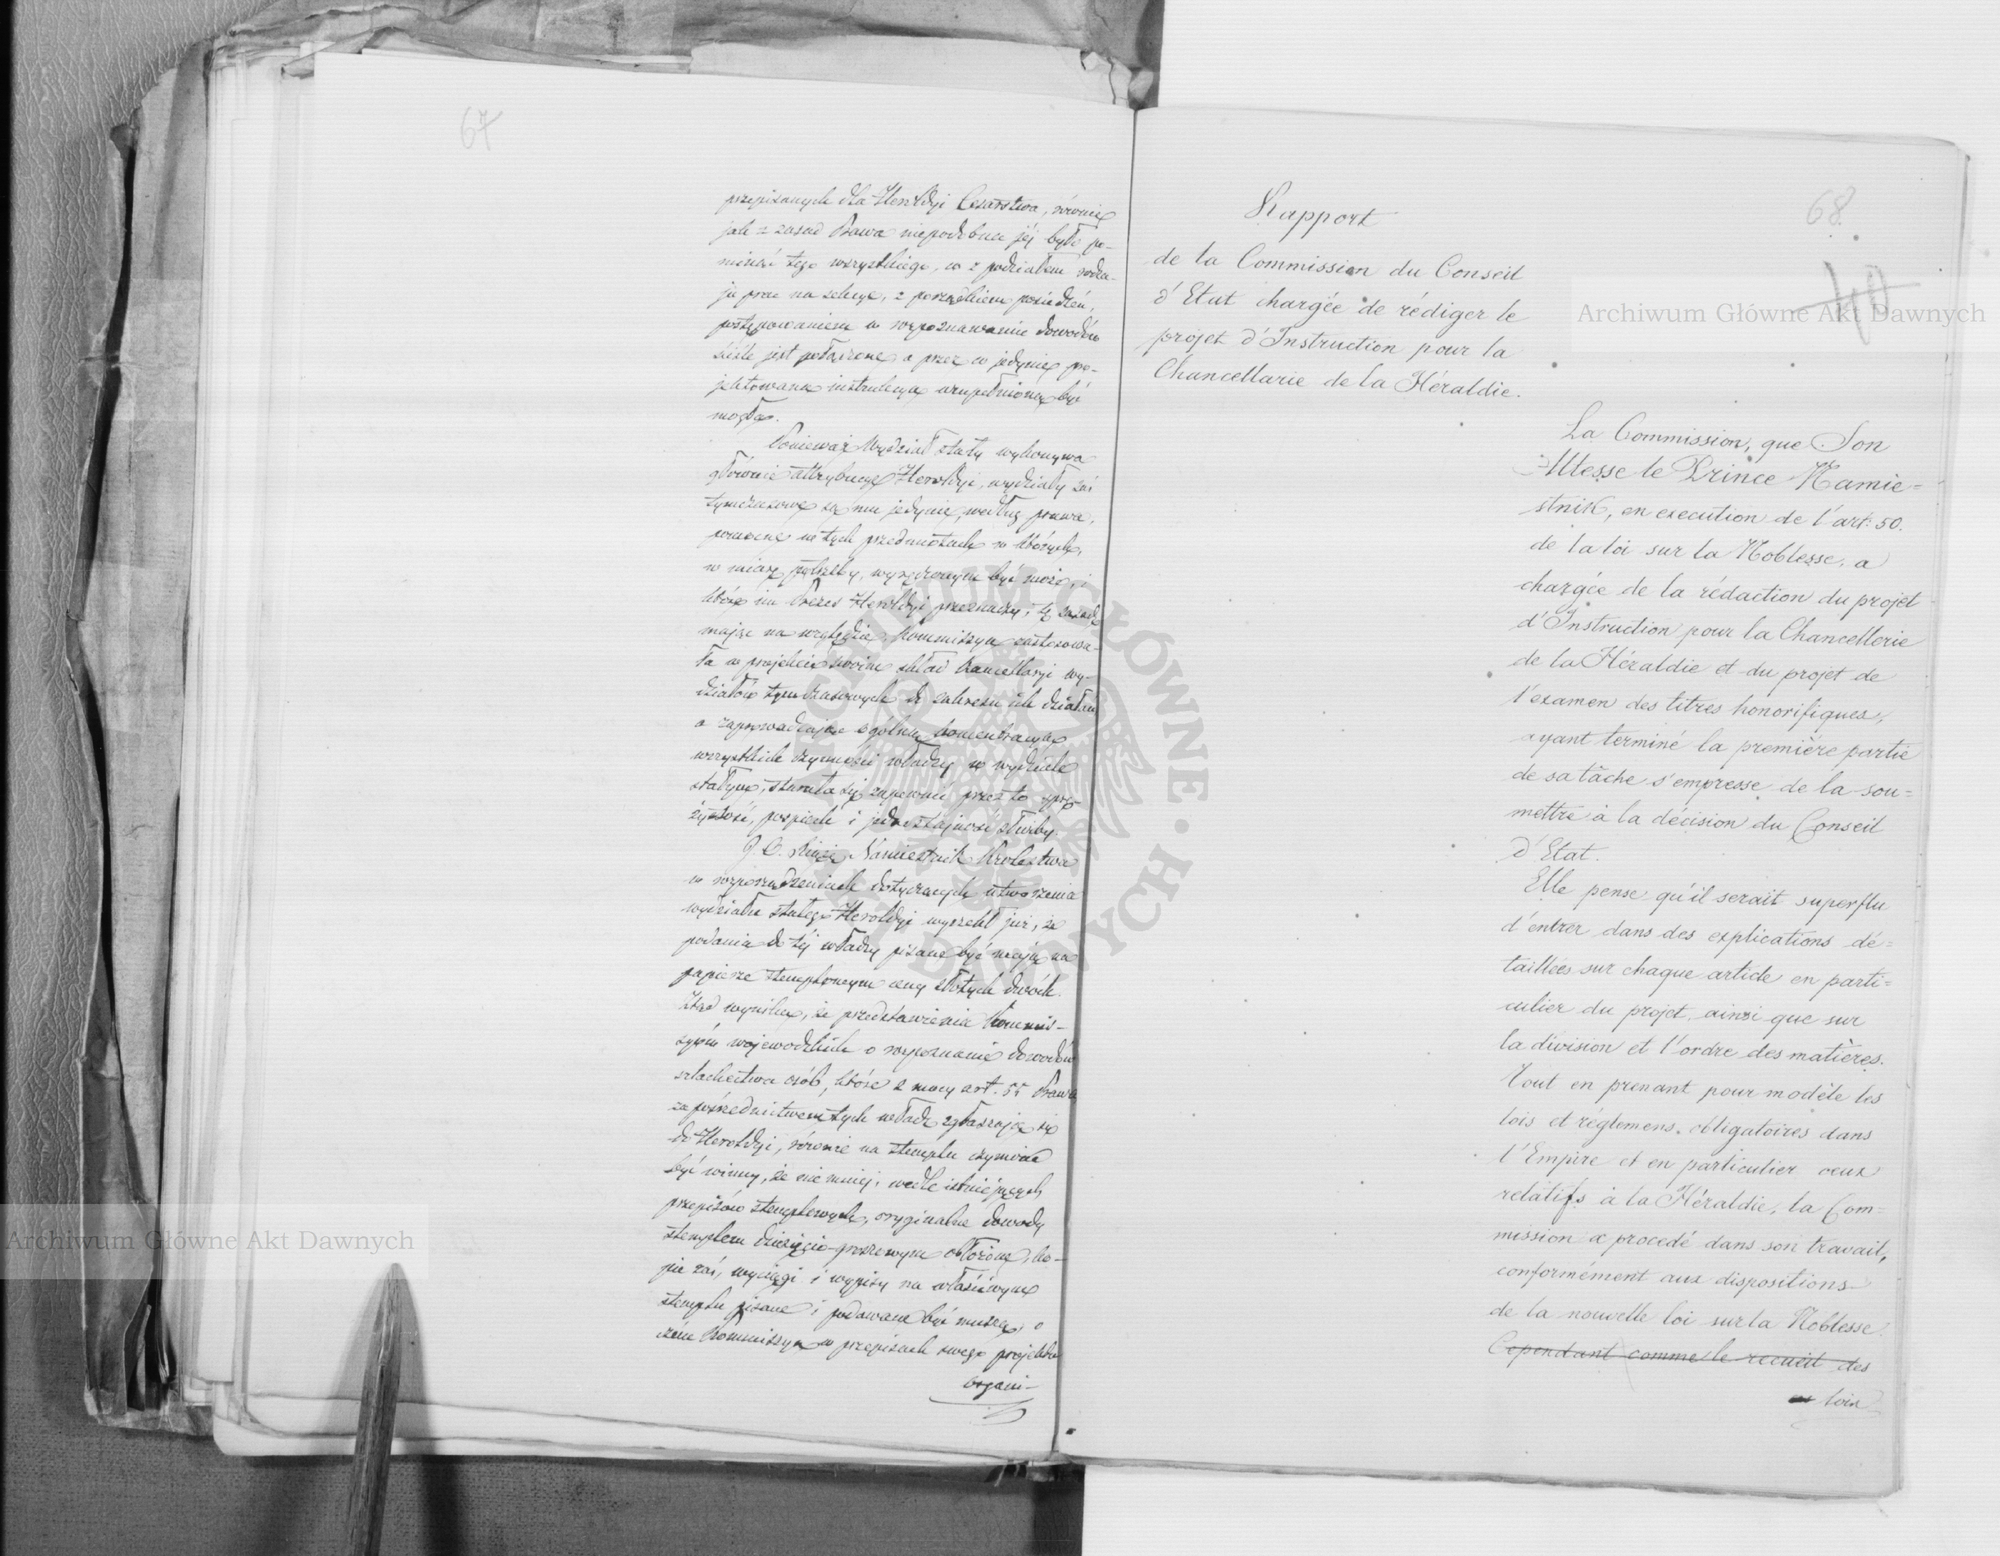 67
przepisanych dla Heroldyi Cesarstwa, równie
jak z zasad Prawa niepodobna jéj było po-
minąć tego wszystkiego, co z podziałem rodza-
ju prac na sekcye, z porządkiem posiedzeń,
postępowaniem w rozpoznawaniu dowodów
ściśle jest połączone, a przez co jedynie pro-
jektowana instrukcya uzupełnioną być
mogła.
Ponieważ Wydział stały wykonywa
głównie attrybucye Heroldyi, wydziały zaś
tymczasowe są mu jedynie, według prawa,
pomocne w tych przedmiotach w których,
w miarę potrzeby, wyręczonym być może, i
które im Prezes Heroldyi przeznaczy; tę zasadę
mając na względzie, Kommissya zastosowa-
ła w projekcie swoim skład Kancellaryi wy-
działów tymczasowych do zakresu ich działań
a zaprowadzając ogólną koncentracyą
wszystkich czynności władzy w wydziale
stałym, starała się zapewnić przez to sprę-
żystość, pospiech i jednostajność służby.
J. O. Xiąże Namiestnik Królestwa
w rozporządzeniach dotyczących utworzenia
wydziału stałego Heroldyi wyrzekł już, że
podania do téj władzy pisane być mają na
papierze stemplowym ceny złotych dwóch.
Ztąd wynika, że przedstawienia Kommis-
syów wojewodzkich o rozpoznanie dowodów
szlachectwa osób, które z mocy art. 55 Prawa
za pośrednictwem tych władz zgłaszają się
do Heroldyi, równie na stemplu czynione
być winny, że nie mniéj, wedle istniejących
przepisów stemplowych, oryginalne dowody
stemplem dziesięcio-groszowym obłożone, ko-
pie zaś, wyciągi i wypisy na właściwym
stemplu pisane i podawane być muszą, o
czém Kommissya w przepisach swego projektu
organi-
68.
Rapport
de la Commission du Conseil
d'Etat chargée de rédiger le
projet d'Instruction pour la
Chancellarie de la Héraldie.
La Commission, que Son
Altesse le Prince Namie=
stnik, en execution de l'art: 50.
de la loi sur la Noblesse, a
chargée de la rédaction du projet
d'Instruction pour la Chancellerie
de la Héraldie et du projet de
l'examen des titres honorifiques,
ayant terminé la première partie
de sa tâche s'empresse de la sou=
mettre à la décision du Conseil
d'Etat.
Elle pense qu'il serait superflu
d'entrer dans des explications dé=
taillées sur chaque article en parti=
culier du projet, ainsi que sur
la division et l'ordre des matières.
Tout en prenant pour modèle les
lois et réglemens obligatoires dans
l'Empire et en particulier ceux
relatifs à la Héraldie, la Com=
mission a procedé dans son travail,
conformément aux dispositions
de la nouvelle loi sur la Noblesse.
Cependant comme le recueil des
lois
Archiwum Główne Akt Dawnych
Archiwum Główne Akt Dawnych
ARCHIWUM GŁÓWNE · AKT DAWNYCH ·